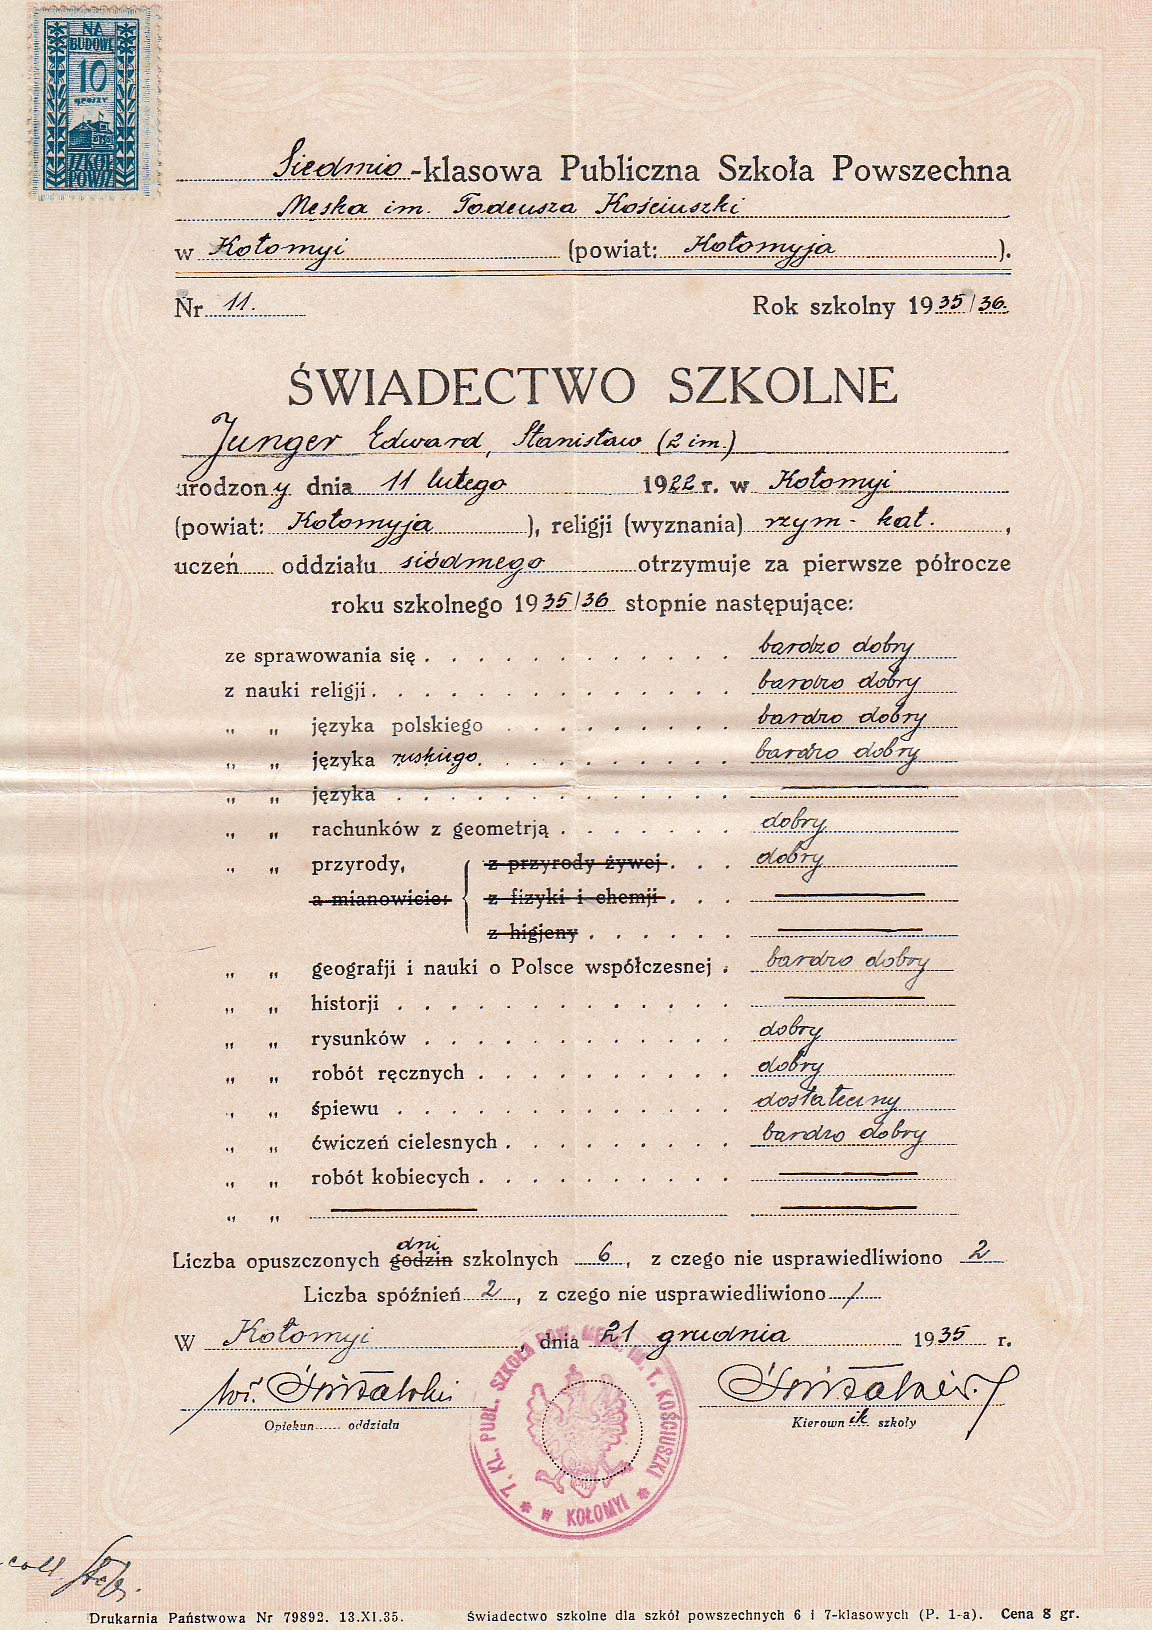 NA
BUDOWĘ
10
GROSZY
SZKÓŁ
POWSZ.
Siedmio-klasowa Publiczna Szkoła Powszechna
Męska im. Tadeusza Kościuszki
w Kołomyi (powiat: Kołomyja ).
Nr 11. Rok szkolny 1935/36.
ŚWIADECTWO SZKOLNE
Junger Edward, Stanisław (2 im.)
urodzony dnia 11 lutego 1922 r. w Kołomyi
(powiat: Kołomyja ), religji (wyznania) rzym - kat. ,
uczeń oddziału siódmego otrzymuje za pierwsze półrocze
roku szkolnego 1935/36 stopnie następujące:
ze sprawowania się . . . . . . . . . . . . bardzo dobry
z nauki religji . . . . . . . . . . . . . . bardzo dobry
„ „ języka polskiego . . . . . . . . . bardzo dobry
„ „ języka ruskiego . . . . . . . . . . bardzo dobry
„ „ języka . . . . . . . . . . . . . ———
„ „ rachunków z geometrją . . . . . . . dobry
„ „ przyrody, z przyrody żywej . . . dobry
a mianowicie: z fizyki i chemji . . . ———
z higjeny . . . . . . ———
„ „ geografji i nauki o Polsce współczesnej . bardzo dobry
„ „ historji . . . . . . . . . . . . . ———
„ „ rysunków . . . . . . . . . . . . dobry
„ „ robót ręcznych . . . . . . . . . . dobry
„ „ śpiewu . . . . . . . . . . . . . dostateczny
„ „ ćwiczeń cielesnych . . . . . . . . . bardzo dobry
„ „ robót kobiecych . . . . . . . . . . ———
„ „ ——— ———
dni
Liczba opuszczonych godzin szkolnych 6, z czego nie usprawiedliwiono 2
Liczba spóźnień 2, z czego nie usprawiedliwiono /
W Kołomyi, dnia 21 grudnia 1935 r.
Opiekun oddziału
Kierownik szkoły
7. KL. PUBL. SZKOŁA POW. MĘSK. IM. T. KOŚCIUSZKI
* w KOŁOMYI *
coll.
Drukarnia Państwowa Nr 79892. 13.XI.35. Świadectwo szkolne dla szkół powszechnych 6 i 7-klasowych (P. 1-a). Cena 8 gr.